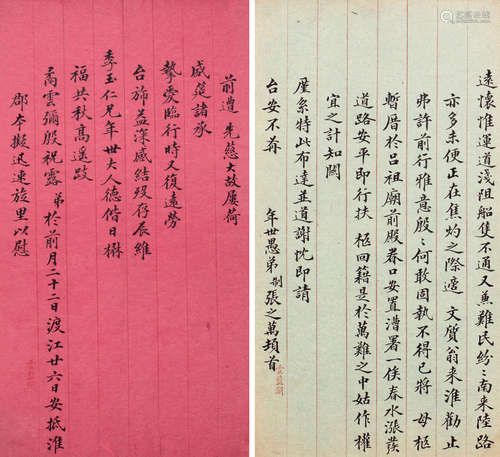 前遭 先慈大故屢荷
盛筵諸承
摯愛臨行時又復遠勞
台旆益深感結歿存辰維
季玉仁兄年世大人德偕日楙
福共秋高遙跂
喬雲彌殷祝露弟於前月二十二日渡江廿六日安抵淮
郡本擬迅速旋里以慰
遠懷惟運道淺阻船隻不通又兼難民紛〻南來陸路
亦多未便正在焦灼之際適 文質翁來淮勸止
弗許前行雅意殷〻何敢固執不得已將 母柩
暫厝於呂祖廟前殿眷口安置漕署一俟春水漲發
道路安平即行扶 柩回籍是於萬難之中姑作權
宜之計知關
廑系特此布達並道謝忱即請
台安不莊
年世愚弟制張之萬頓首